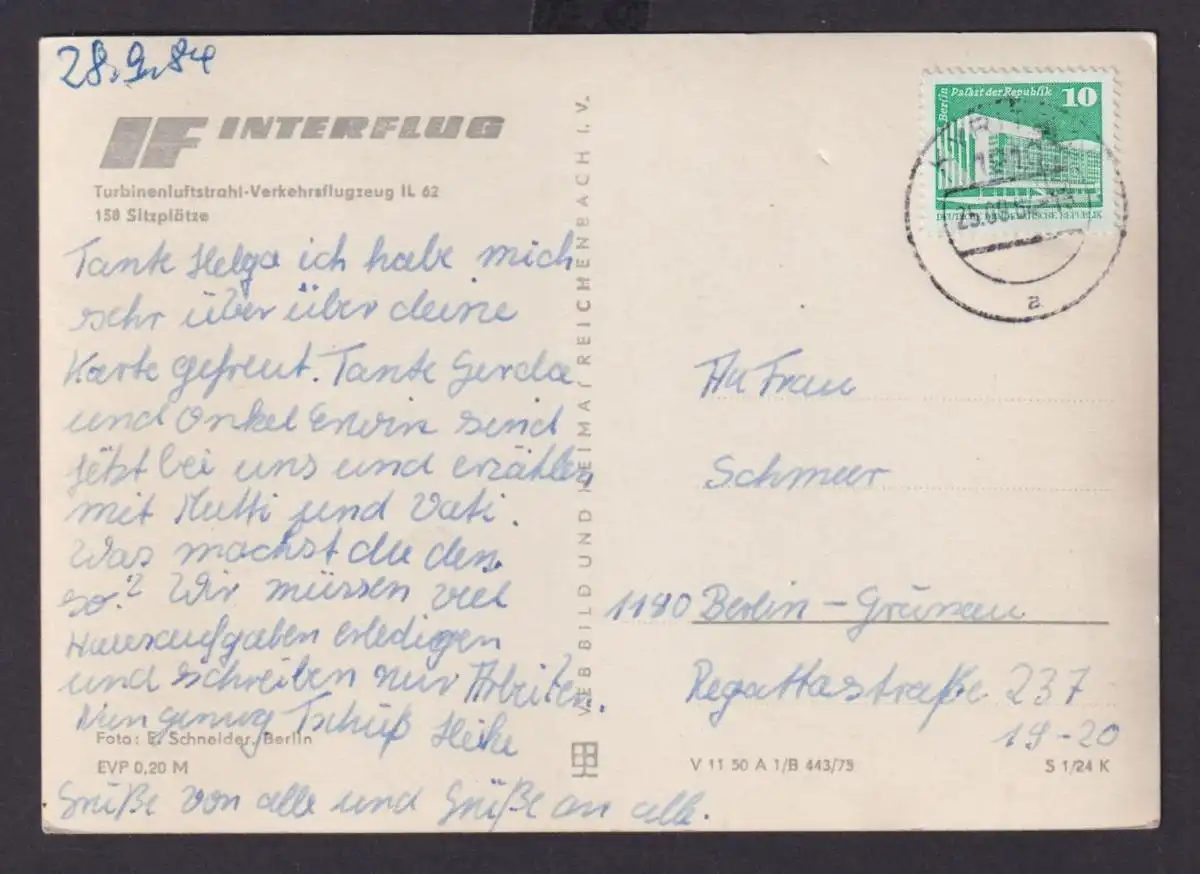 28.9.84
IF INTERFLUG
Turbinenluftstrahl-Verkehrsflugzeug IL 62
158 Sitzplätze
Tante Helga ich habe mich
sehr über über deine
Karte gefreut. Tante Gerda
und Onkel Erwin sind
jetzt bei uns und erzählen
mit Mutti und Vati.
Was machst du den
so? Wir müssen viel
Hausaufgaben erledigen
und schreiben nur Arbeiten.
Nun genung Tschüß Heike
Foto: E. Schneider, Berlin
EVP 0,20 M
Grüße von alle und Grüße an alle.
VEB BILD UND HEIMAT REICHENBACH I. V.
Berlin Palast der Republik 10
DEUTSCHE DEMOKRATISCHE REPUBLIK
a
An Frau
Schmeer
1180 Berlin-Grünau
Regattastraße 237
19-20
V 11 50 A 1/B 443/73
S 1/24 K